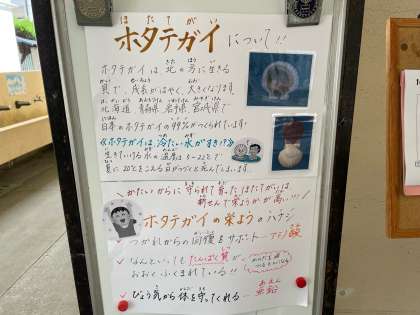 ホタテガイについて!!
ホタテガイは北の方に生きる
貝で、成長がはやく、大きくなります。
北海道 青森県 岩手県 宮城県で
日本のホタテガイの99%がつくられています。
《ホタテガイは冷たい水がすき!?》
生きていける水の温度は5〜22℃で
夏に20℃をこえると
かたいからに守られて育ったほたてがいは、
新せんで栄ようかが高い!!!
ホタテガイの栄ようのハナシ
✓つかれからの回復をサポート
✓なんといってもたんぱく質が、
おおくふくまれている!!
✓びょう気から体を守ってくれる…亜鉛